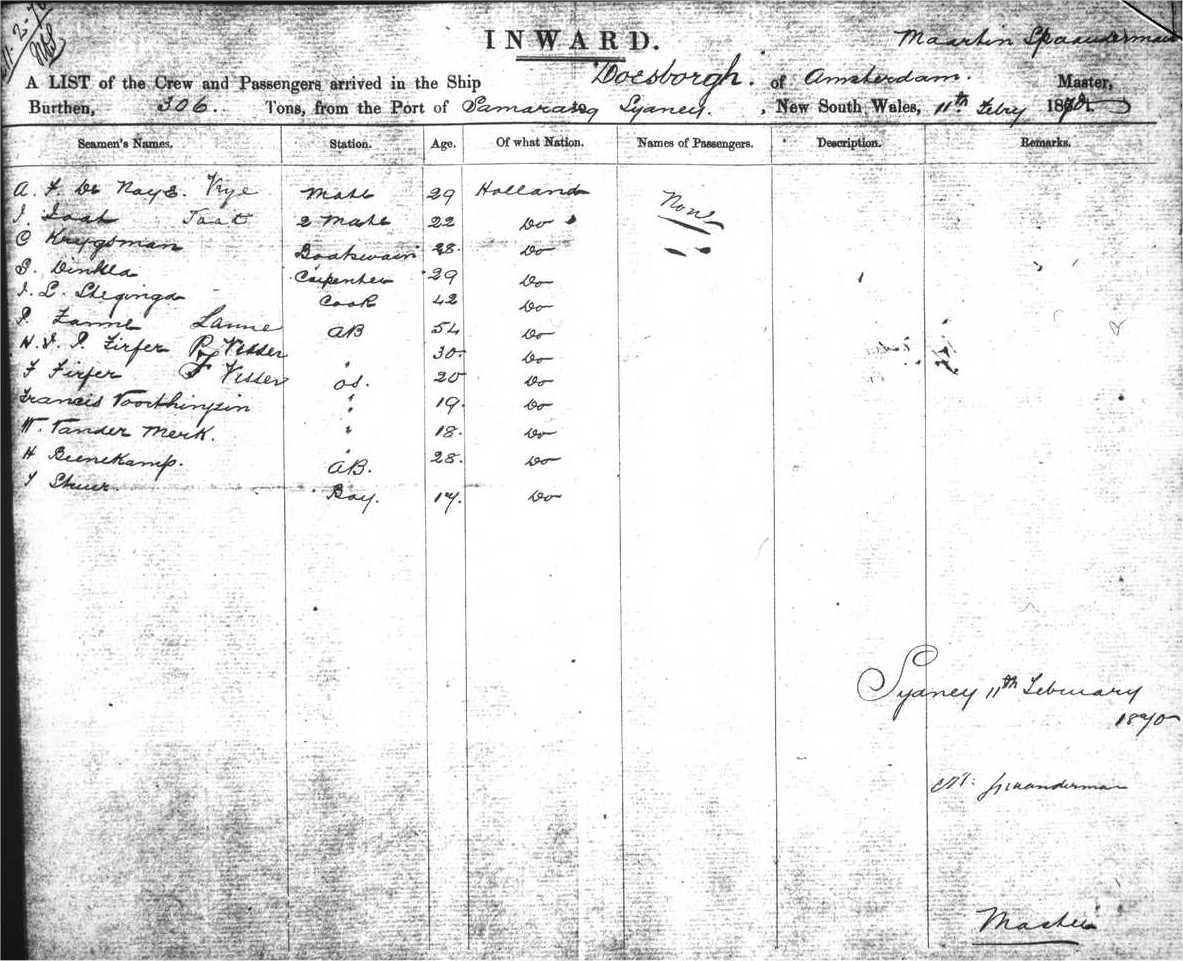 11-2-70
INWARD.
Maartin Spaanderman
A LIST of the Crew and Passengers arrived in the Ship Doesborgh. of Amsterdam. Master,
Burthen, 306. Tons, from the Port of Samarang Sydney. , New South Wales, 11th Febry 1870
Seamen's Names. Station. Age. Of what Nation. Names of Passengers. Description. Remarks.
A. F. De Naye. Vrye Mate 29 Holland None
J. Taat Taat 2 Mate 22 Do
C Krygsman Boatswain 28 Do
S. Dinkla Carpenter 29 Do
J. L. Steginga Cook 42 Do
P. Lanne Lanne AB 54 Do
H. J. P. Firfer P Visser " 30. Do
F Firfer F Visser OS. 20 Do
Francis Voorthinpin " 19. Do
W. Vander Merk. " 18. Do
H Beenekamp. AB. 28. Do
Y Stuur. Boy. 17. Do
Sydney 11th February
1870
M. Spaanderman
Master